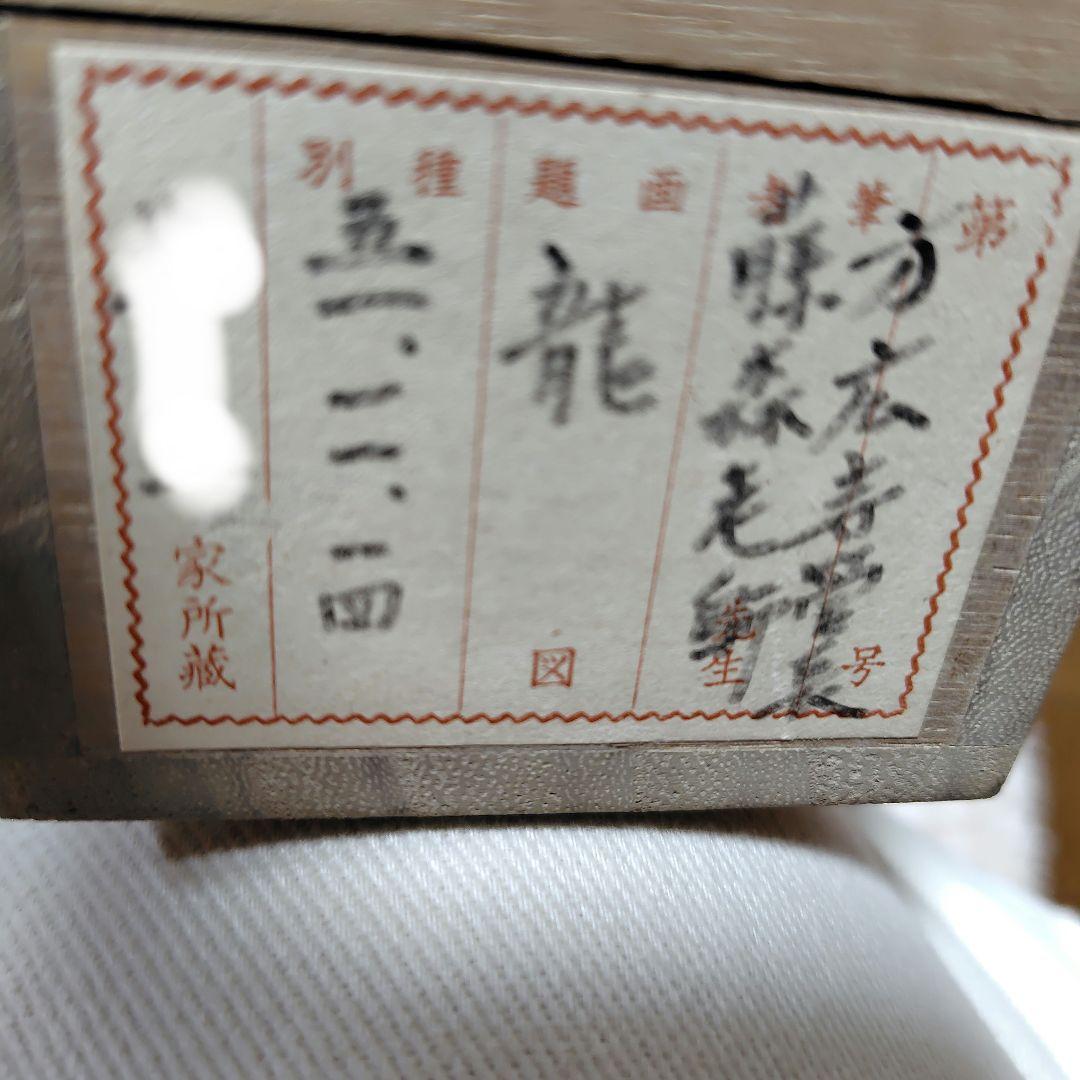 第 号
方広寺管長
筆者
藤森老師
先生
画題
龍
図
種別
五一、一一、一四
家所蔵